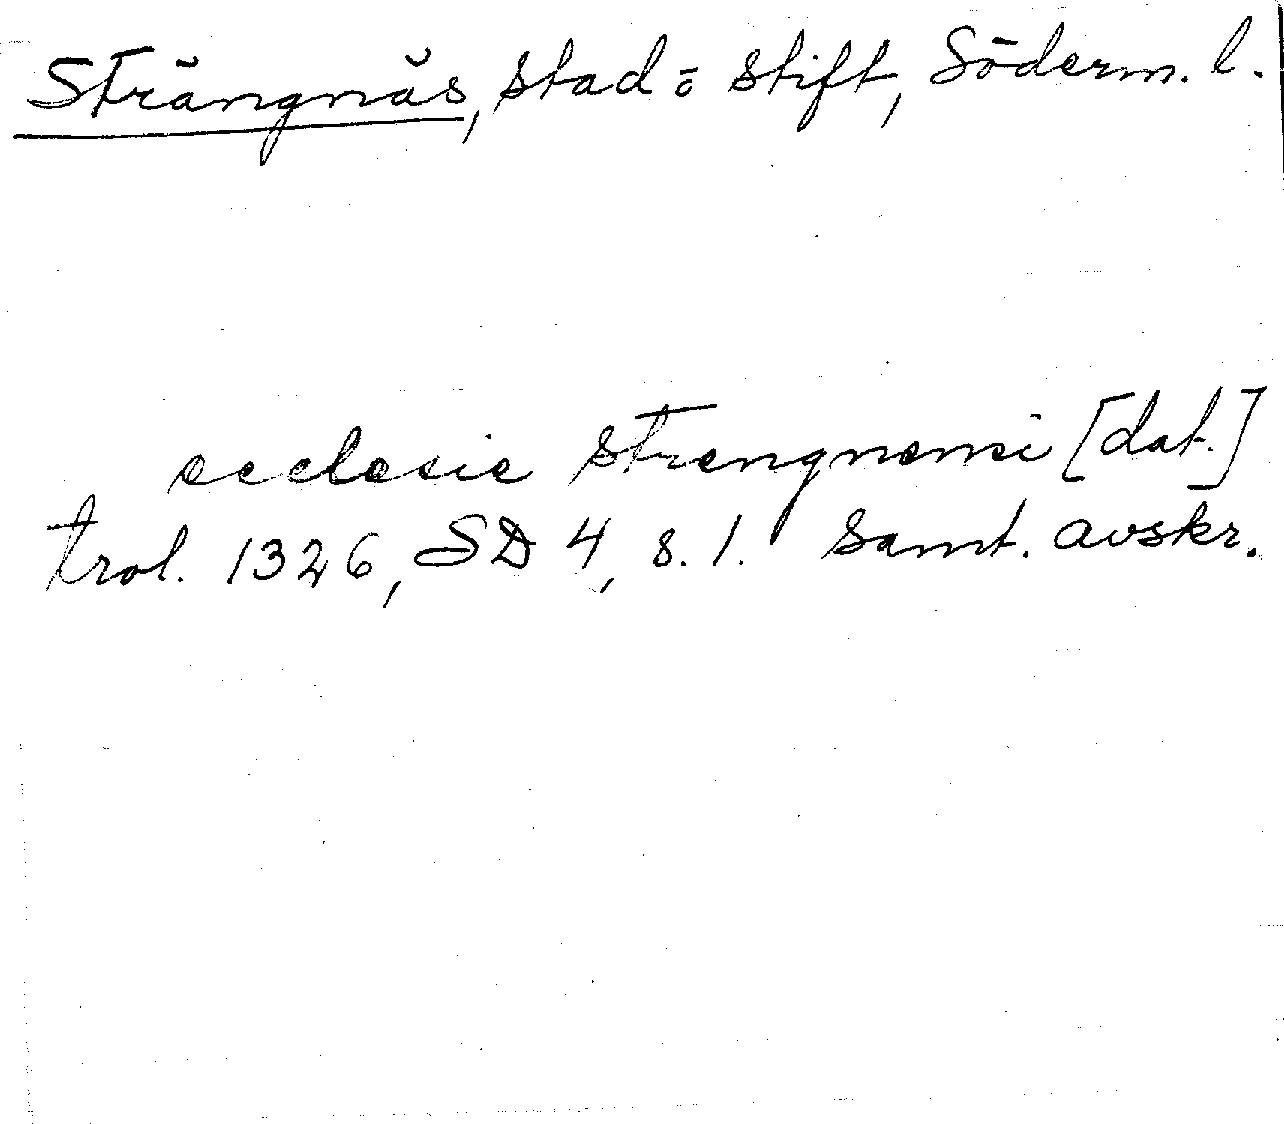 Strängnäs, stad o stift, Söderm. l.
ecclesie strengnensi [dat.]
trol. 1326, SD 4, s. 1. Samt. avskr.